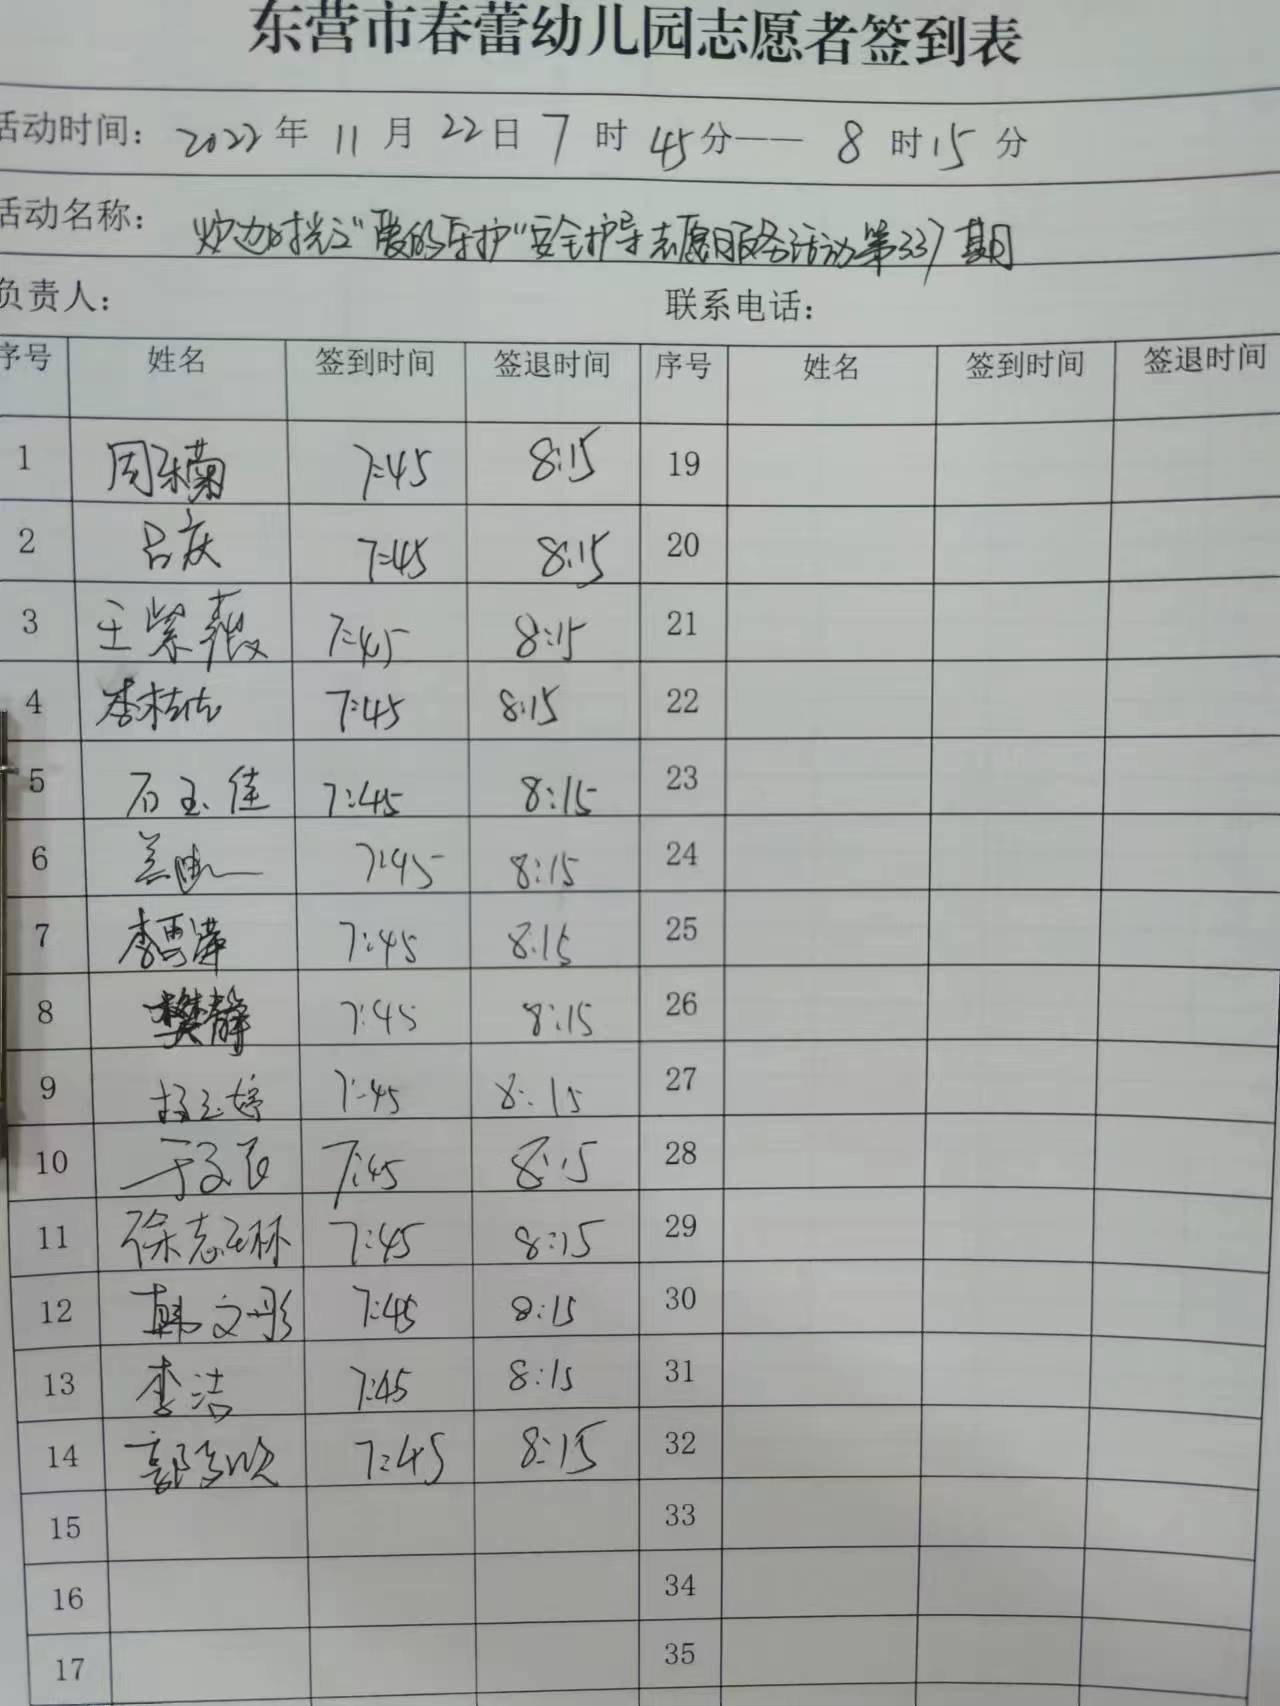 东营市春蕾幼儿园志愿者签到表
活动时间: 2022年11月22日7时45分——8时15分
活动名称: 炉边时光之"爱的守护"安全护导志愿服务活动第337期
负责人: 联系电话:
序号 姓名 签到时间 签退时间 序号 姓名 签到时间 签退时间
1 周 菊 7:45 8:15 19
2 吕庆 7:45 8:15 20
3 王紫薇 7:45 8:15 21
4 李桔佑 7:45 8:15 22
5 石玉佳 7:45 8:15 23
6 7:45 8:15 24
7 李 萍 7:45 8:15 25
8 樊静 7:45 8:15 26
9 杨玉婷 7:45 8:15 27
10 于文 7:45 8:15 28
11 徐志 林 7:45 8:15 29
12 韩文彤 7:45 8:15 30
13 李洁 7:45 8:15 31
14 郭 欣 7:45 8:15 32
15 33
16 34
17 35